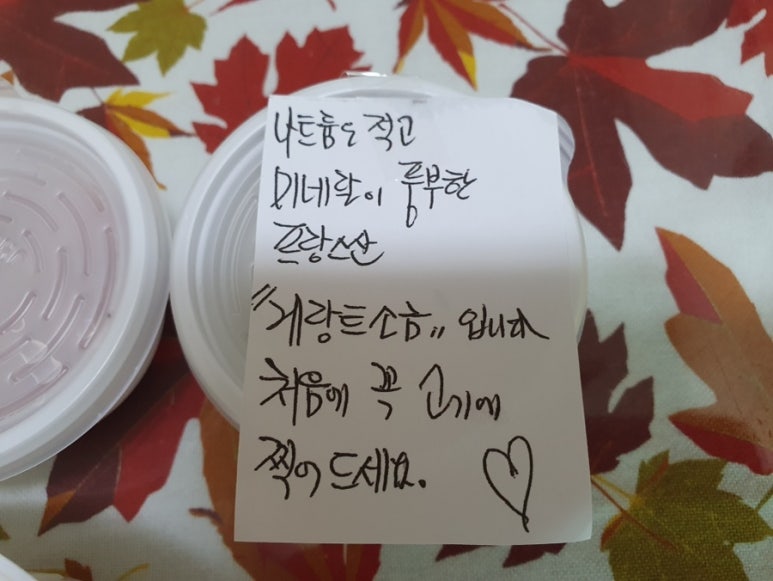 나트륨도 적고
미네랄이 풍부한
프랑스산
"게랑트소금" 입니다
처음에 꼭 고기에
찍어 드세요.